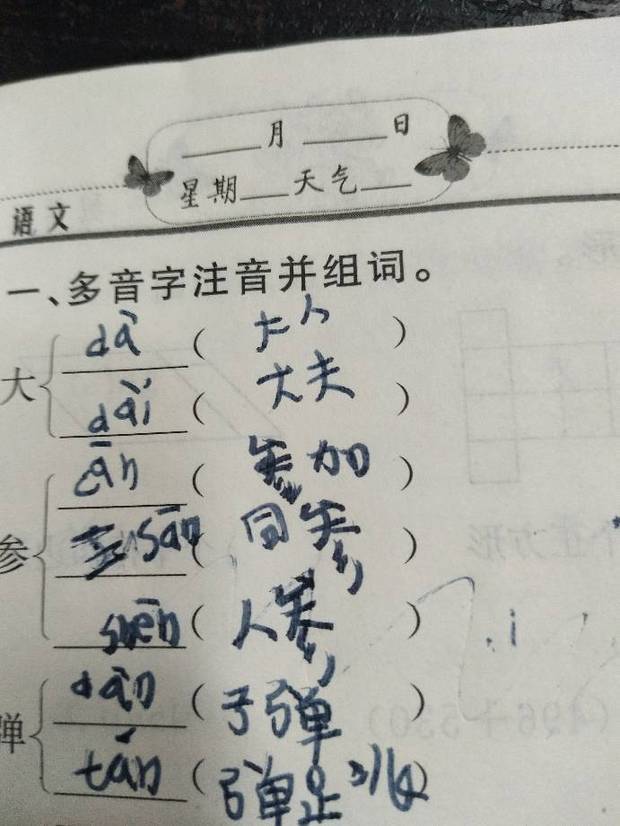 ____月____日
星期___天气___
语文
一、多音字注音并组词。
大 dà (大人)
dài (大夫)
参 cān (参加)
sān (同参)
shēn (人参)
弹 dàn (子弹)
tán (弹跳)